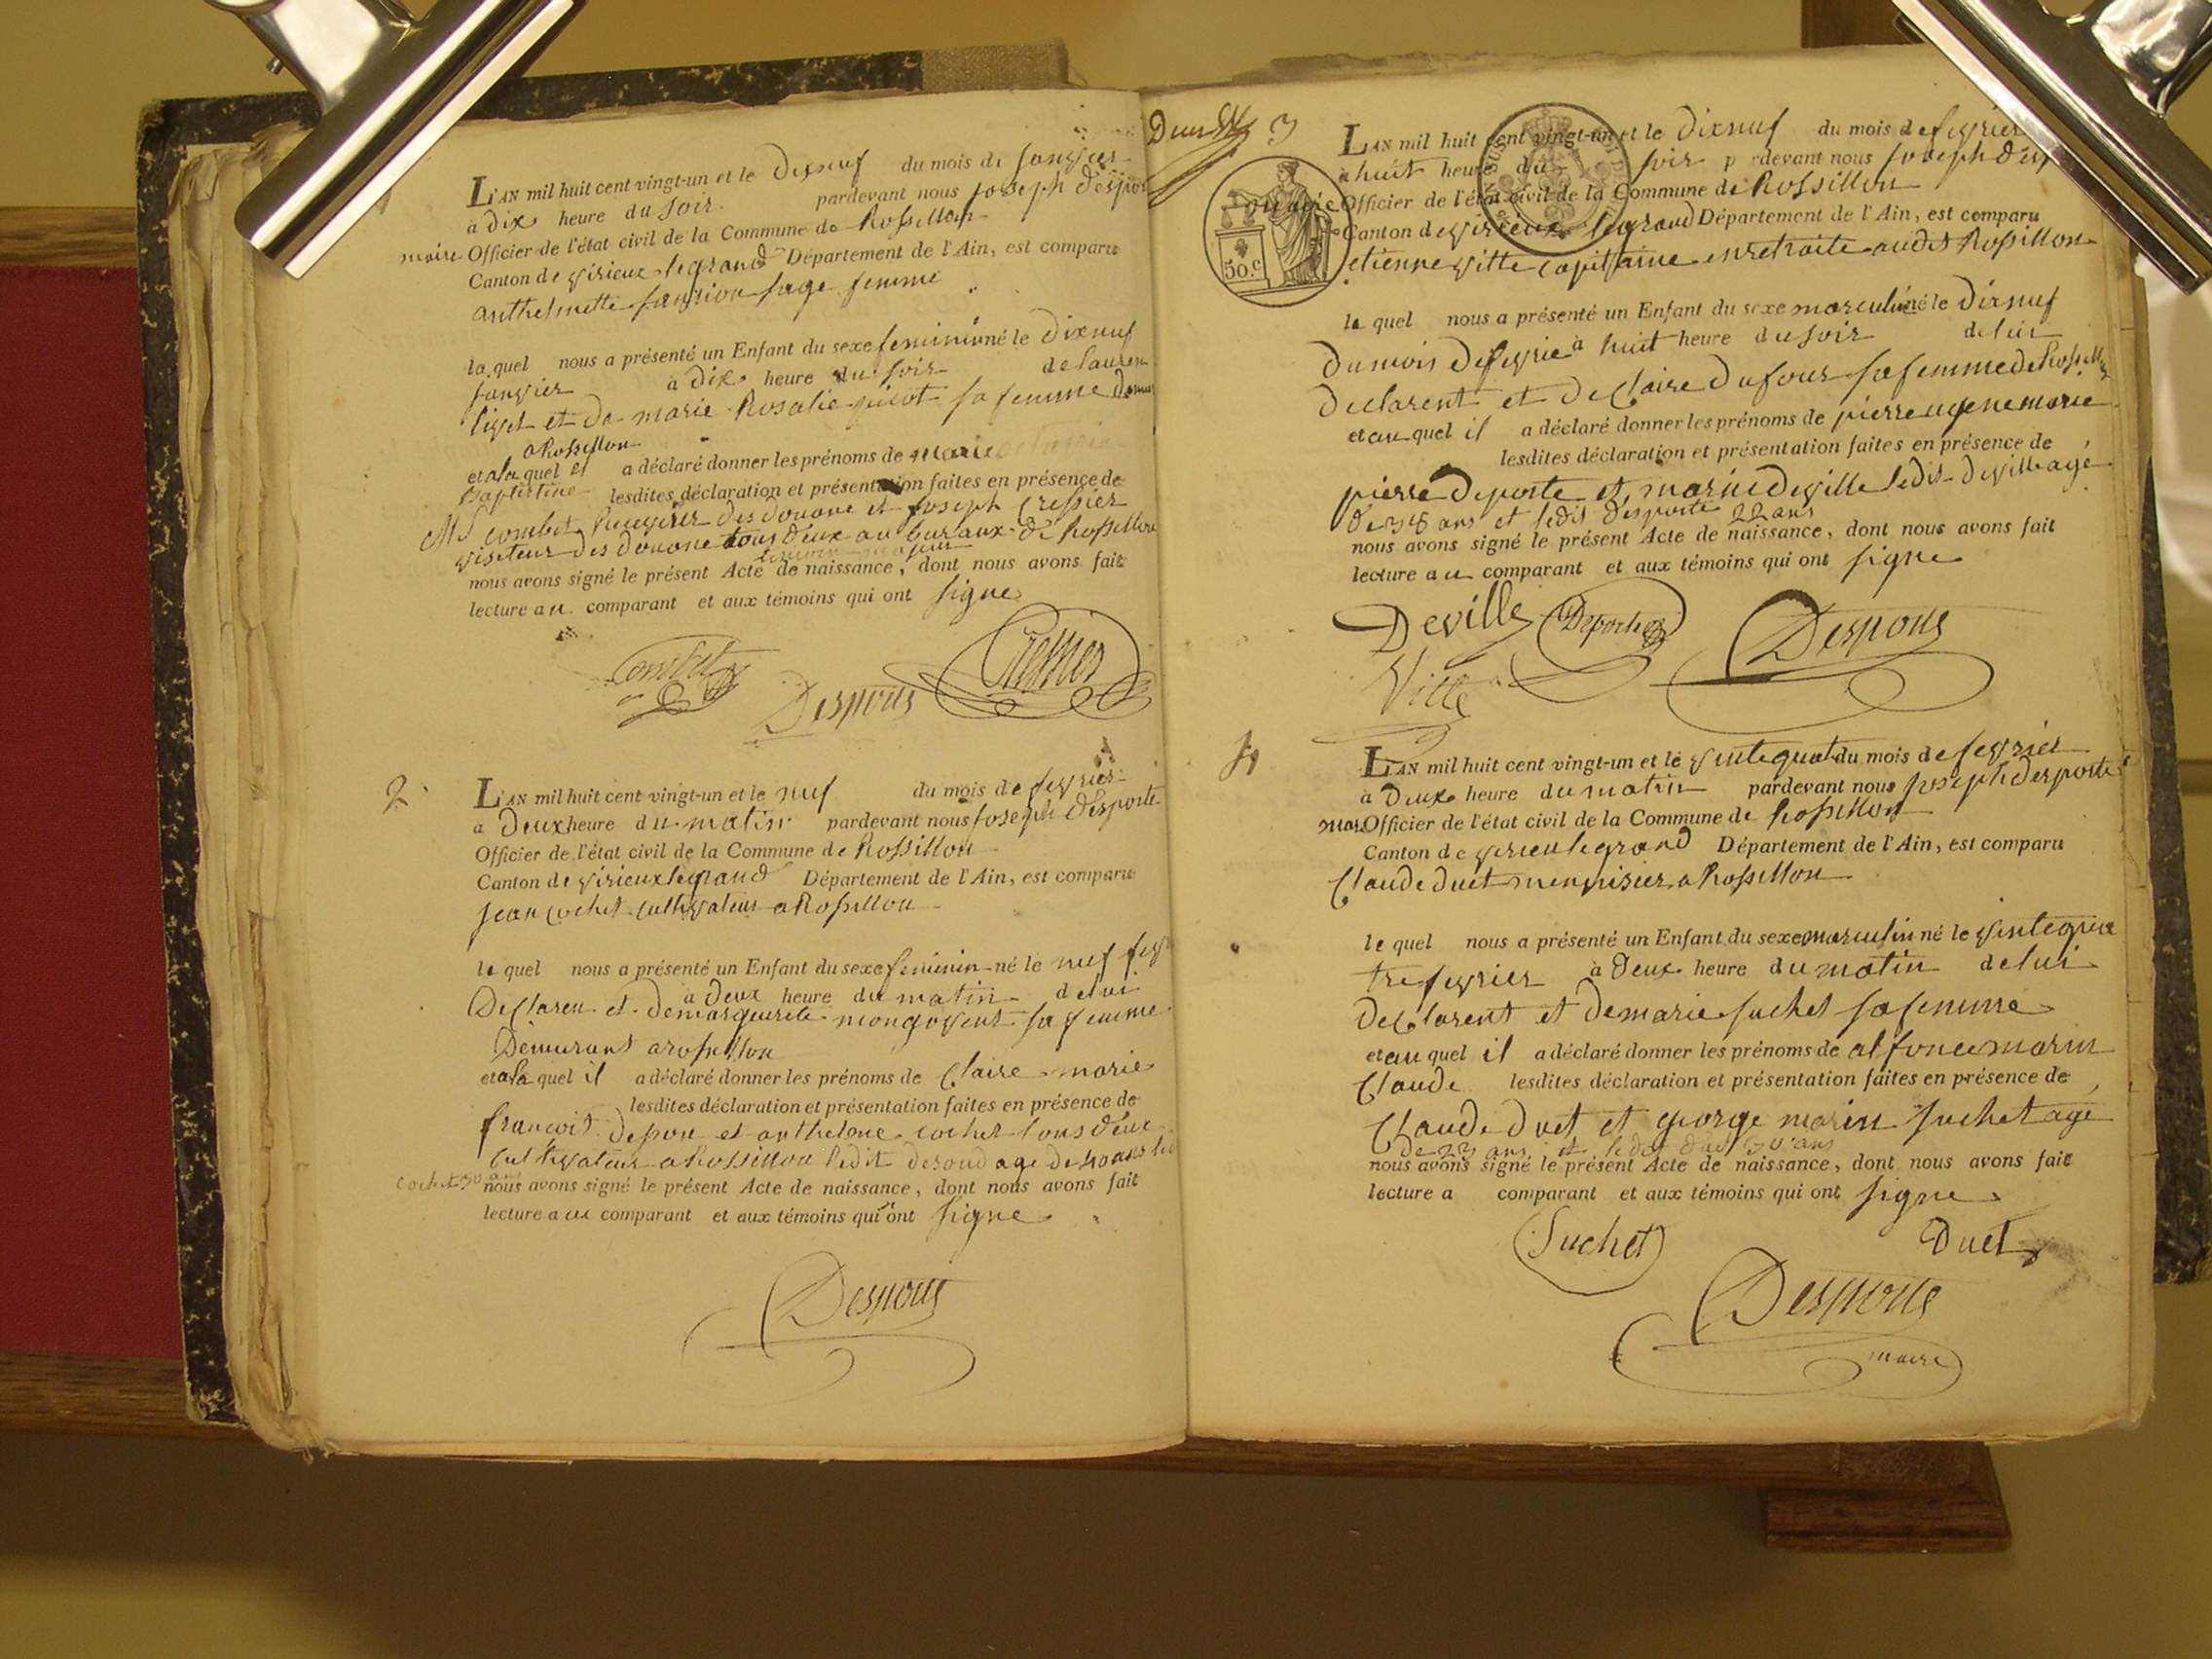 L'AN mil huit cent vingt-un et le dixneuf du mois de janvier
à dix heure du soir. pardevant nous joseph desport
maire Officier de l'état civil de la Commune de Rossillon
Canton de virieux legrand Département de l'Ain, est comparu
anthelmette sage femme
la quel nous a présenté un Enfant du sexe feminin né le dixneuf
janvier à dix heure du soir de lauren
et de marie Rosalie sa femme
a Rossillon
et a la quel el a déclaré donner les prénoms de marie
Baptistine lesdites déclaration et présentation faites en présence de
combet des douane et joseph Cressier
visiteur des douane tous deux au buraux de Rossillon
nous avons signé le présent Acte de naissance, dont nous avons fait
lecture au comparant et aux témoins qui ont signe
Combet Desporte Cressier
2
L'AN mil huit cent vingt-un et le neuf du mois de fevrier
à deux heure du matin pardevant nous joseph desporte
Officier de l'état civil de la Commune de Rossillon
Canton de virieux legrand Département de l'Ain, est comparu
jean cochet cultivateur a Rossillon
le quel nous a présenté un Enfant du sexe feminin né le neuf fev
à deux heure du matin de lui
Declaren et de marguerite sa femme
Demurant a rossillon
et a la quel il a déclaré donner les prénoms de Claire marie
lesdites déclaration et présentation faites en présence de
francois et anthelme cochet tous deux
cultivateur a Rossillon ledit age de 40 ans
cochet 30
nous avons signé le présent Acte de naissance, dont nous avons fait
lecture au comparant et aux témoins qui ont signe
Desporte
3
L'AN mil huit cent vingt-un et le dixneuf du mois de fevrier
à huit heure du soir pardevant nous joseph desp
maire Officier de l'état civil de la Commune de Rossillon
Canton de virieux legrand Département de l'Ain, est comparu
50.c
etienne vitte capitaine en retraite audit Rossillon
le quel nous a présenté un Enfant du sexe masculin né le dixneuf
du mois de fevrie à huit heure du soir de lui
declarent et de Claire dufour sa femme de Rossillon
et au quel il a déclaré donner les prénoms de pierre eugene marie
lesdites déclaration et présentation faites en présence de
pierre deporte et marie deville ledit deville age
ans et ledit desporte 22 ans
nous avons signé le présent Acte de naissance, dont nous avons fait
lecture au comparant et aux témoins qui ont signe
Deville Deporte Desporte
Vitte
4
L'AN mil huit cent vingt-un et le vintequat du mois de fevrier
à deux heure du matin pardevant nous joseph desporte
mair Officier de l'état civil de la Commune de Rossillon
Canton de virieu legrand Département de l'Ain, est comparu
Claude duet menuisier a Rossillon
le quel nous a présenté un Enfant du sexe masculin né le vintequa
tre fevrier à deux heure du matin de lui
declarent et de marie suchet sa femme
et au quel il a déclaré donner les prénoms de alfonce marin
Claude lesdites déclaration et présentation faites en présence de
Claude duet et george marin suchet age
de 23 ans et ledit duet ans
nous avons signé le présent Acte de naissance, dont nous avons fait
lecture a comparant et aux témoins qui ont signe
Suchet Duet
Desporte
maire